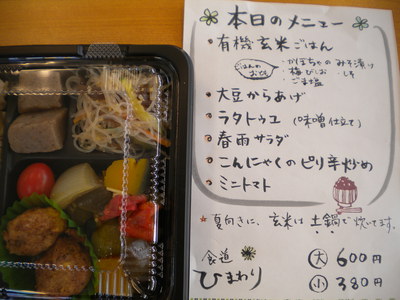 本日のメニュー
有機玄米ごはん
ごはんのお供
・かぼちゃのみそ漬け
・梅びしお ・しそ
・ごま塩
大豆からあげ
ラタトゥユ(味噌仕立て)
春雨サラダ
こんにゃくのピリ辛炒め
ミニトマト
★夏向きに、玄米は土鍋で炊いてます。
食道 大 600円
ひまわり 小 380円